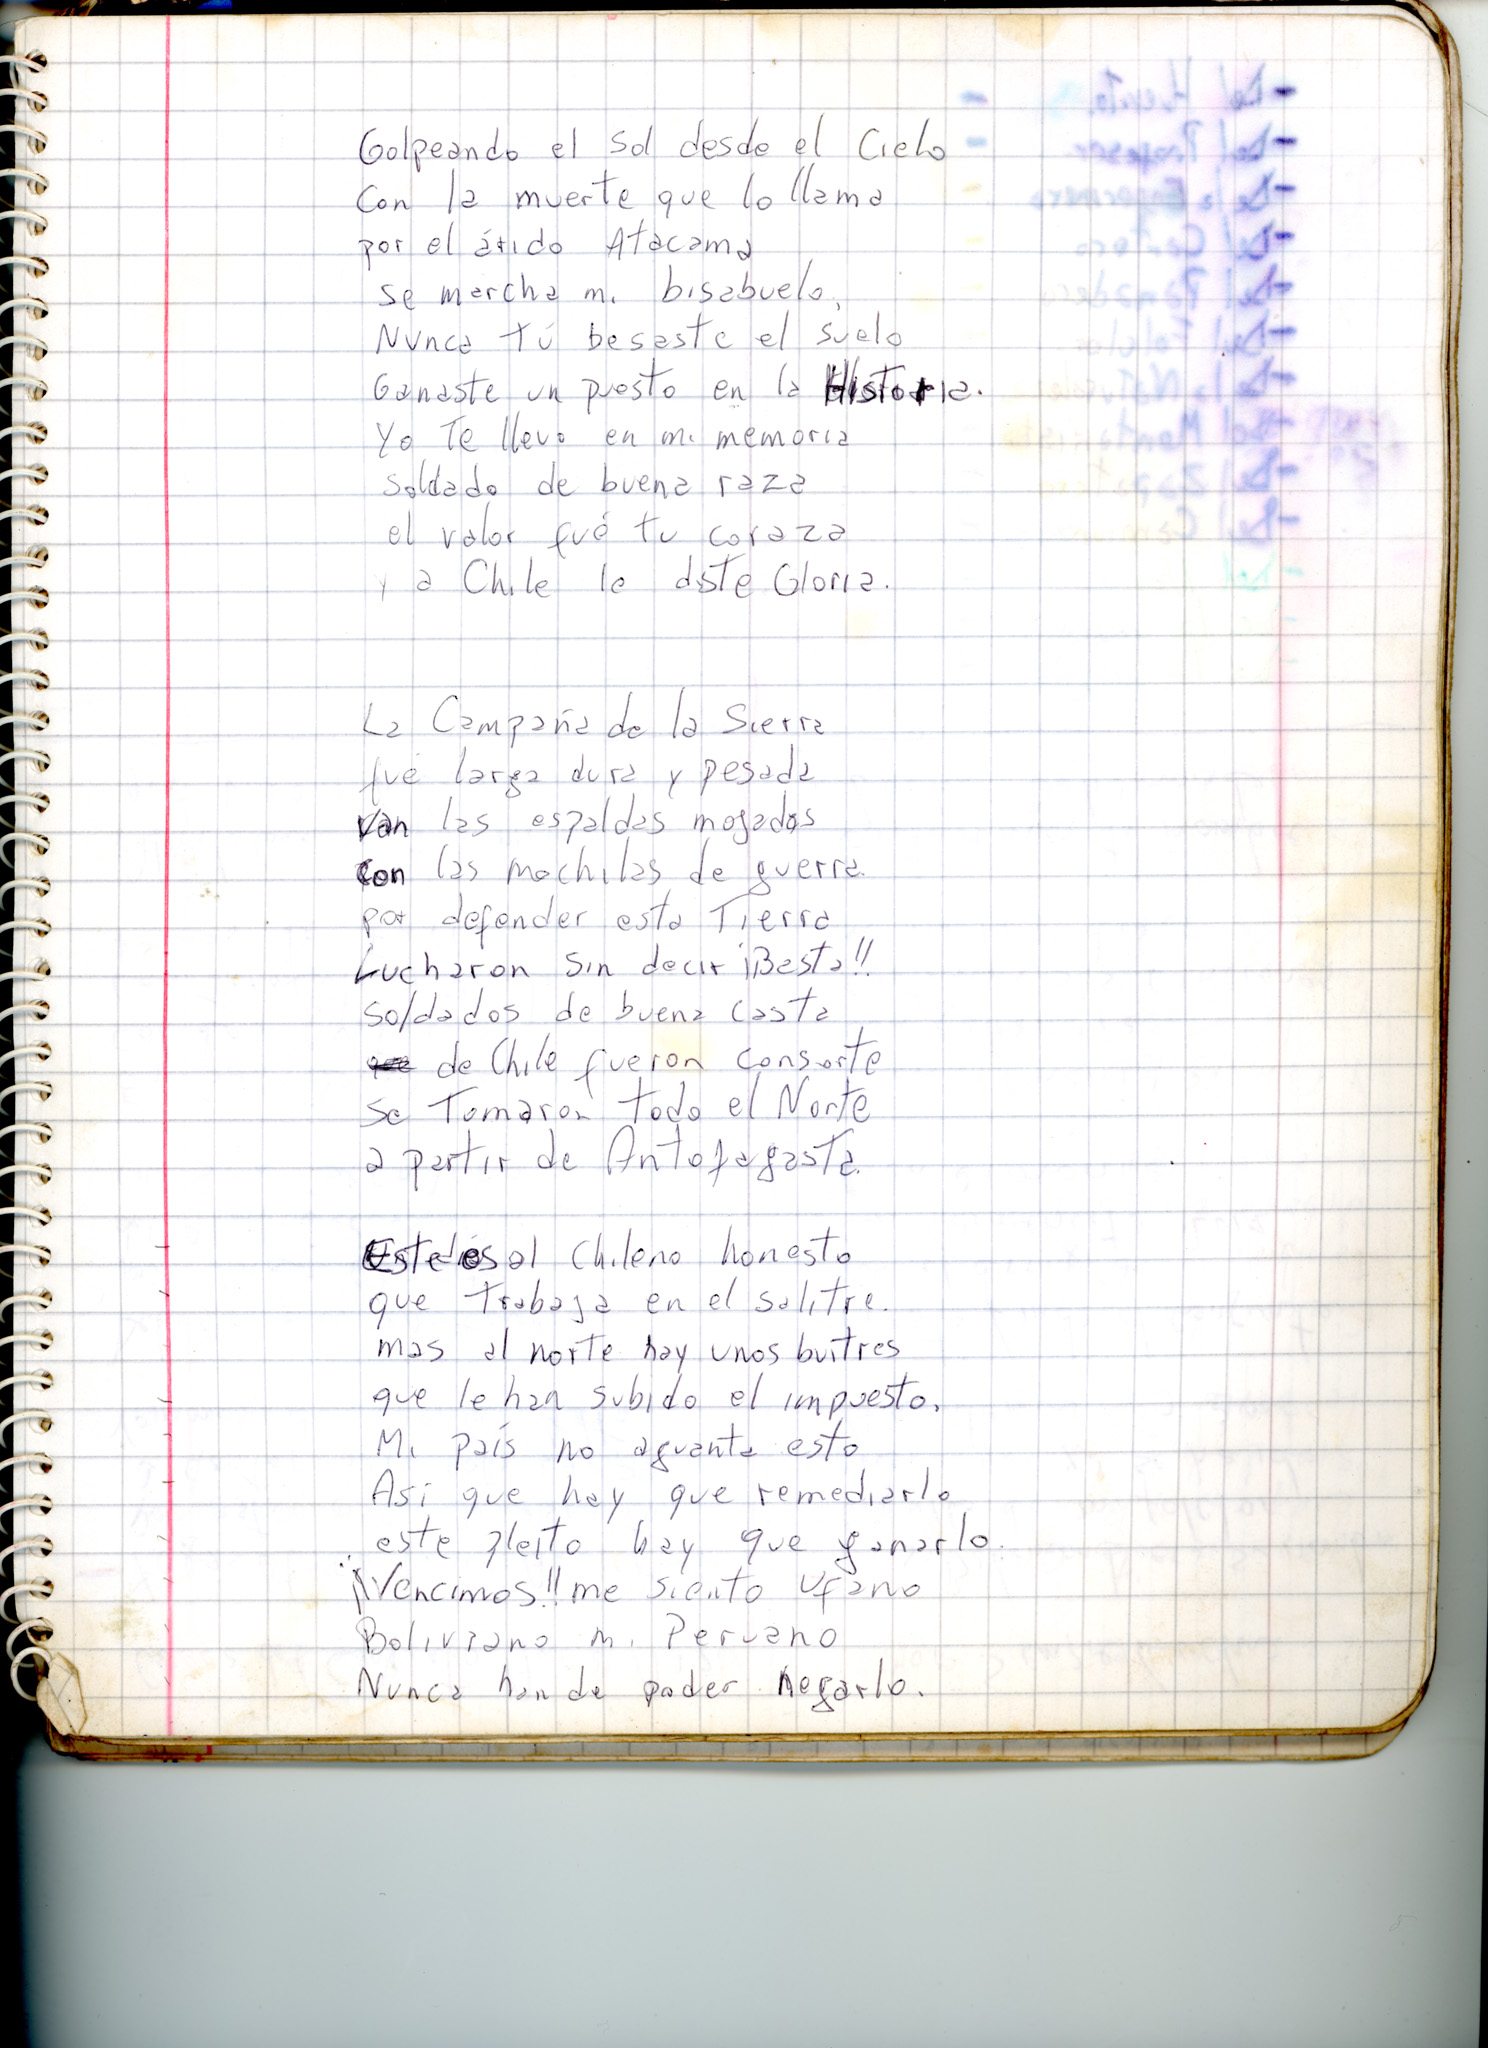 Golpeando el sol desde el Cielo
Con la muerte que lo llama
por el árido Atacama
se marcha mi bisabuelo,
Nunca tú besaste el suelo
Ganaste un puesto en la Historia.
Yo Te llevo en mi memoria
soldado de buena raza
el valor fué tu coraza
y a Chile le diste Gloria.
La Campaña de la Sierra
fué larga dura y pesada
van las espaldas mojadas
con las mochilas de guerra.
por defender esta Tierra
Lucharon sin decir ¡¡Basta!!
soldados de buena casta
de Chile fueron consorte
se Tomaron todo el Norte
a partir de Antofagasta.
Este es el Chileno honesto
que trabaja en el salitre.
mas al norte hay unos buitres
que le han subido el impuesto.
Mi país no aguanta esto
Asi que hay que remediarlo
este pleito hay que ganarlo.
¡¡Vencimos!! me siento ufano
Boliviano ni Peruano
Nunca han de poder negarlo.
-Del Viento
-Del Profesor
-De la Enfermera
-Del
-Del Panadero
-Del Folclor
-De la
-Del
-Del Zapatero
-Del
-Del